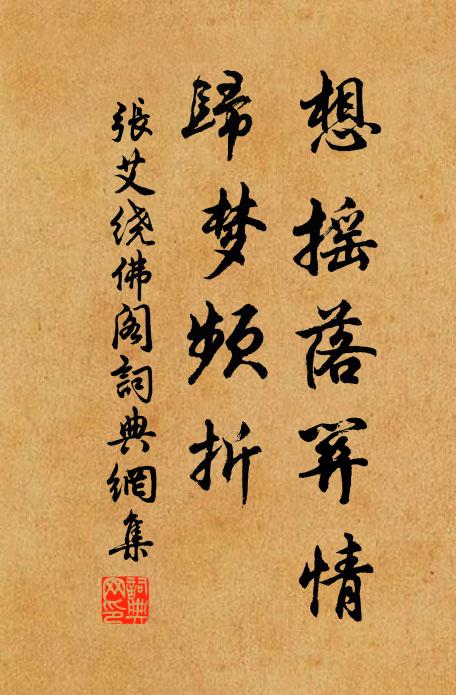 想摇落關情
歸梦频折
張艾绕佛阁詞典網集
詞典
网印